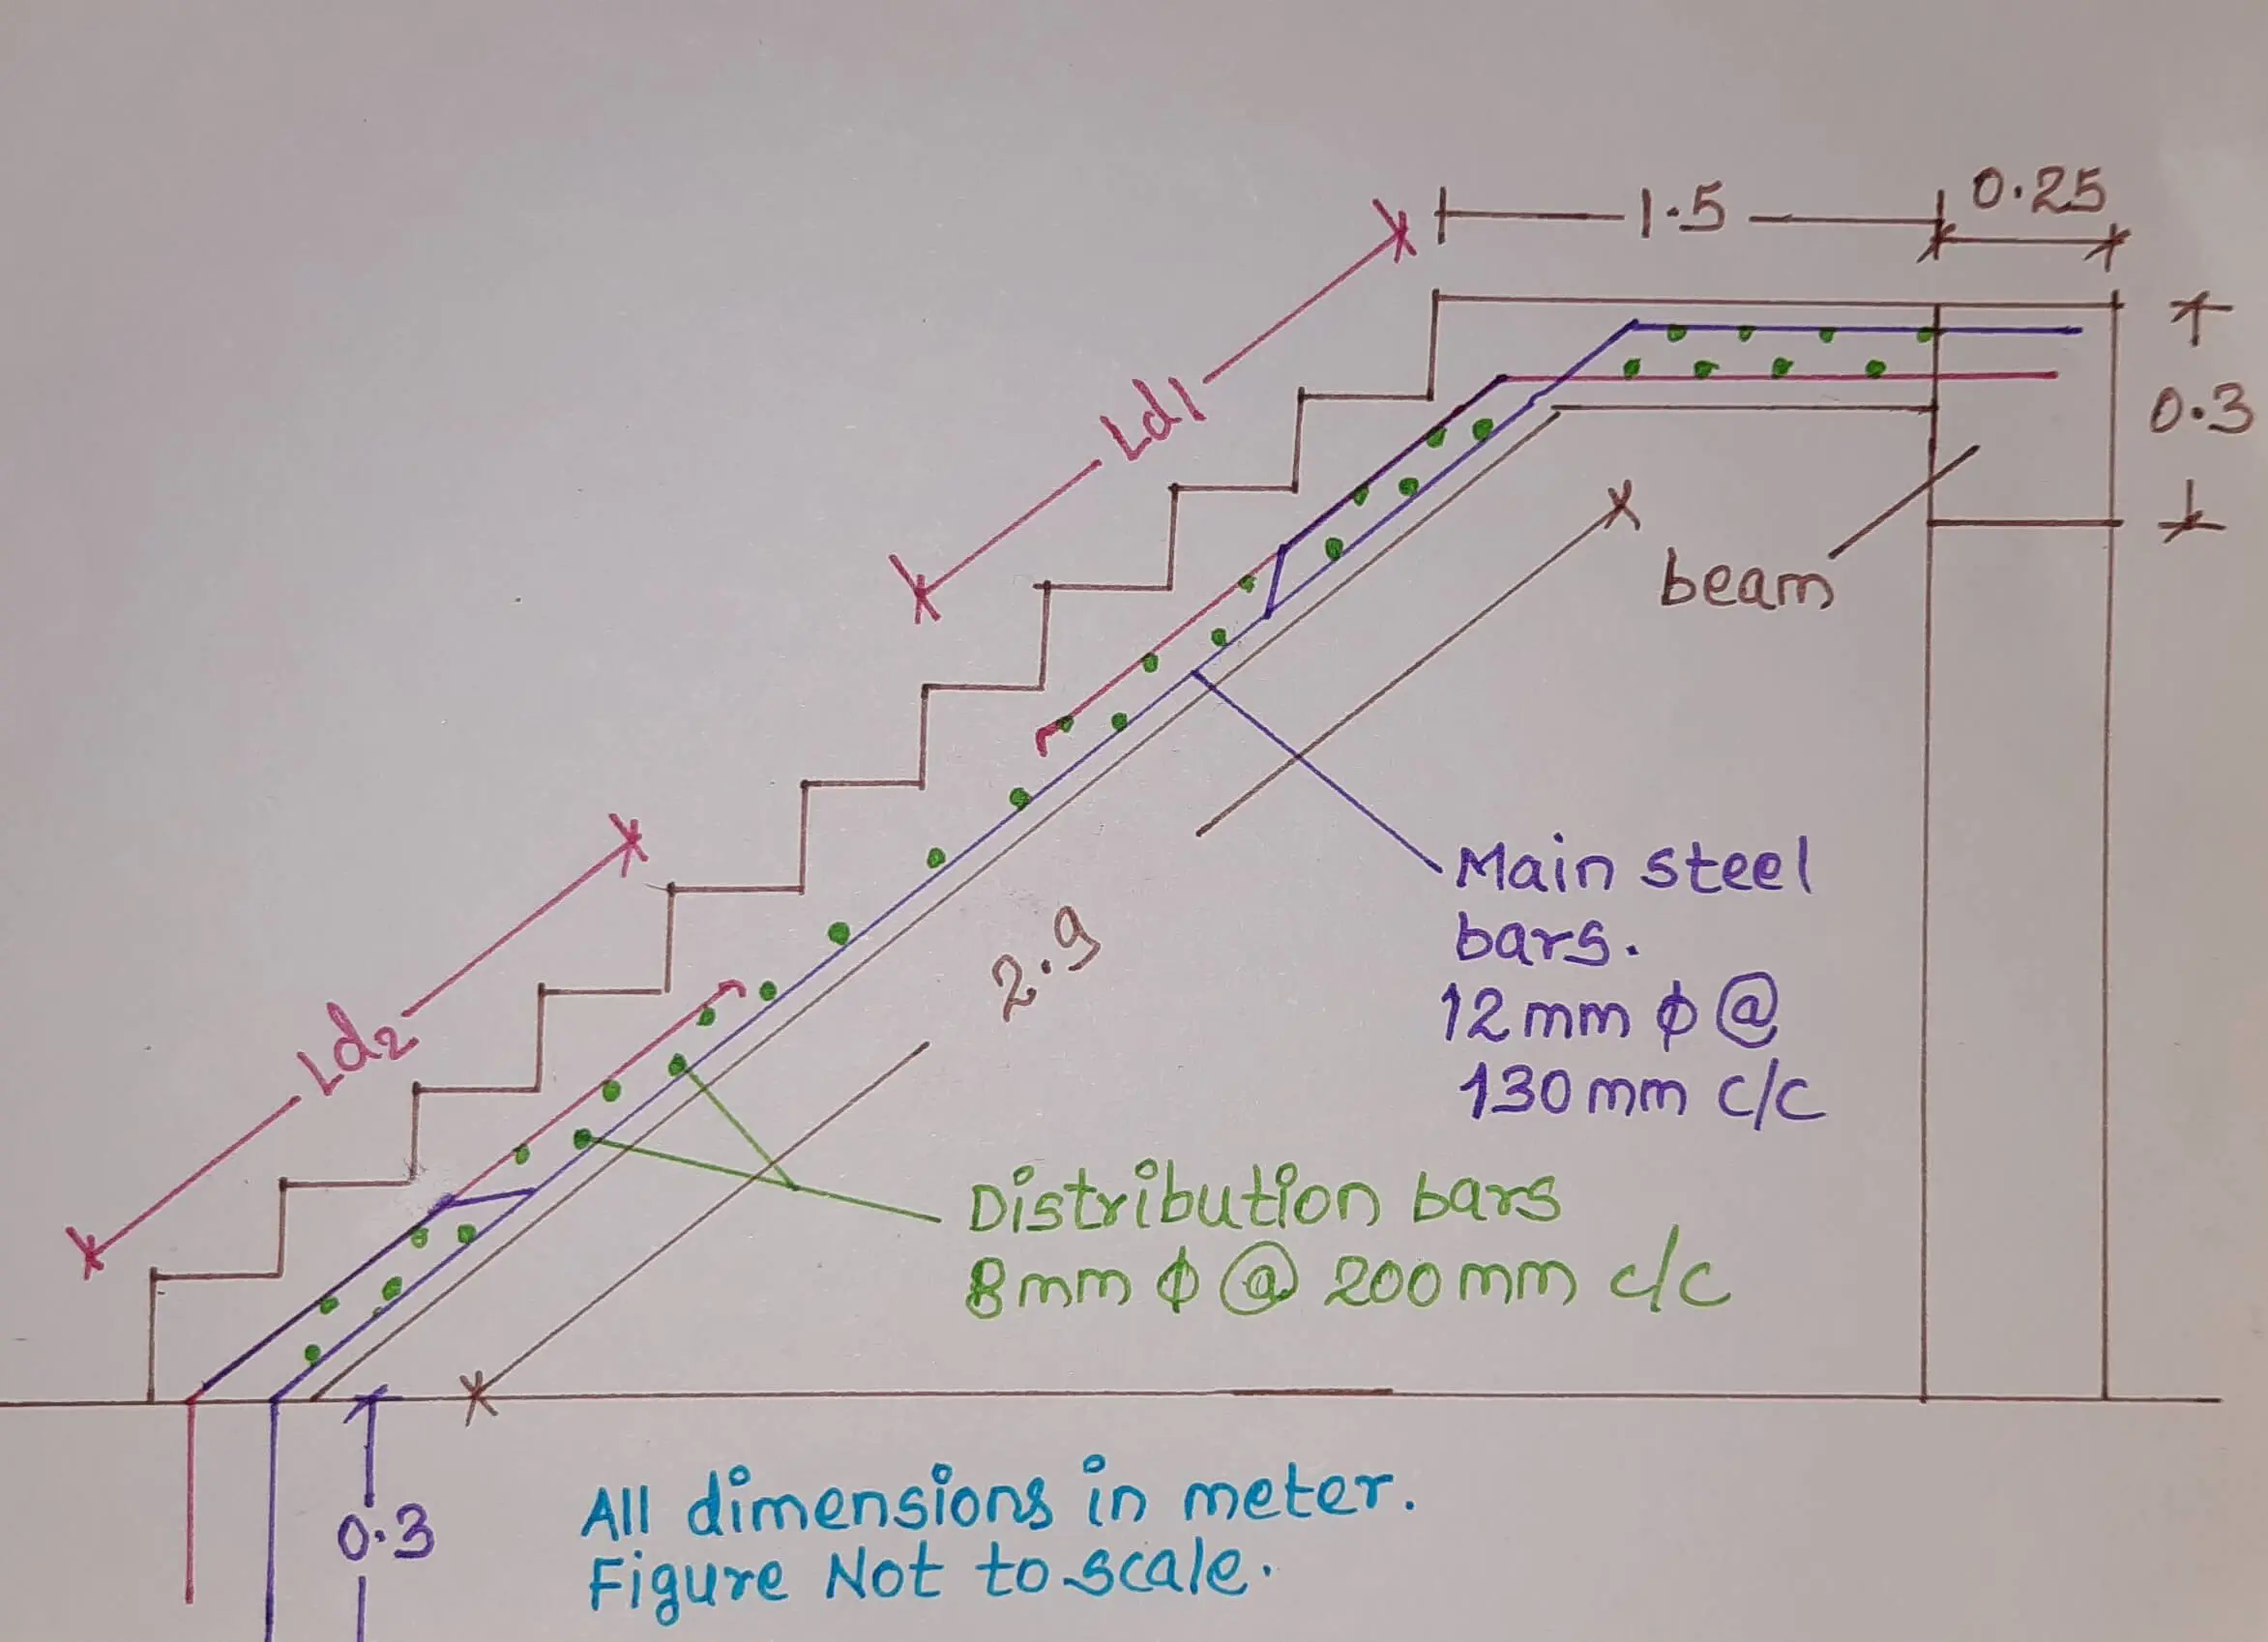 1.5
0.25
Ld1
0.3
beam
Ld2
2.9
Main steel
bars.
12 mm ϕ @
130 mm c/c
Distribution bars
8 mm ϕ @ 200 mm c/c
0.3
All dimensions in meter.
Figure Not to scale.